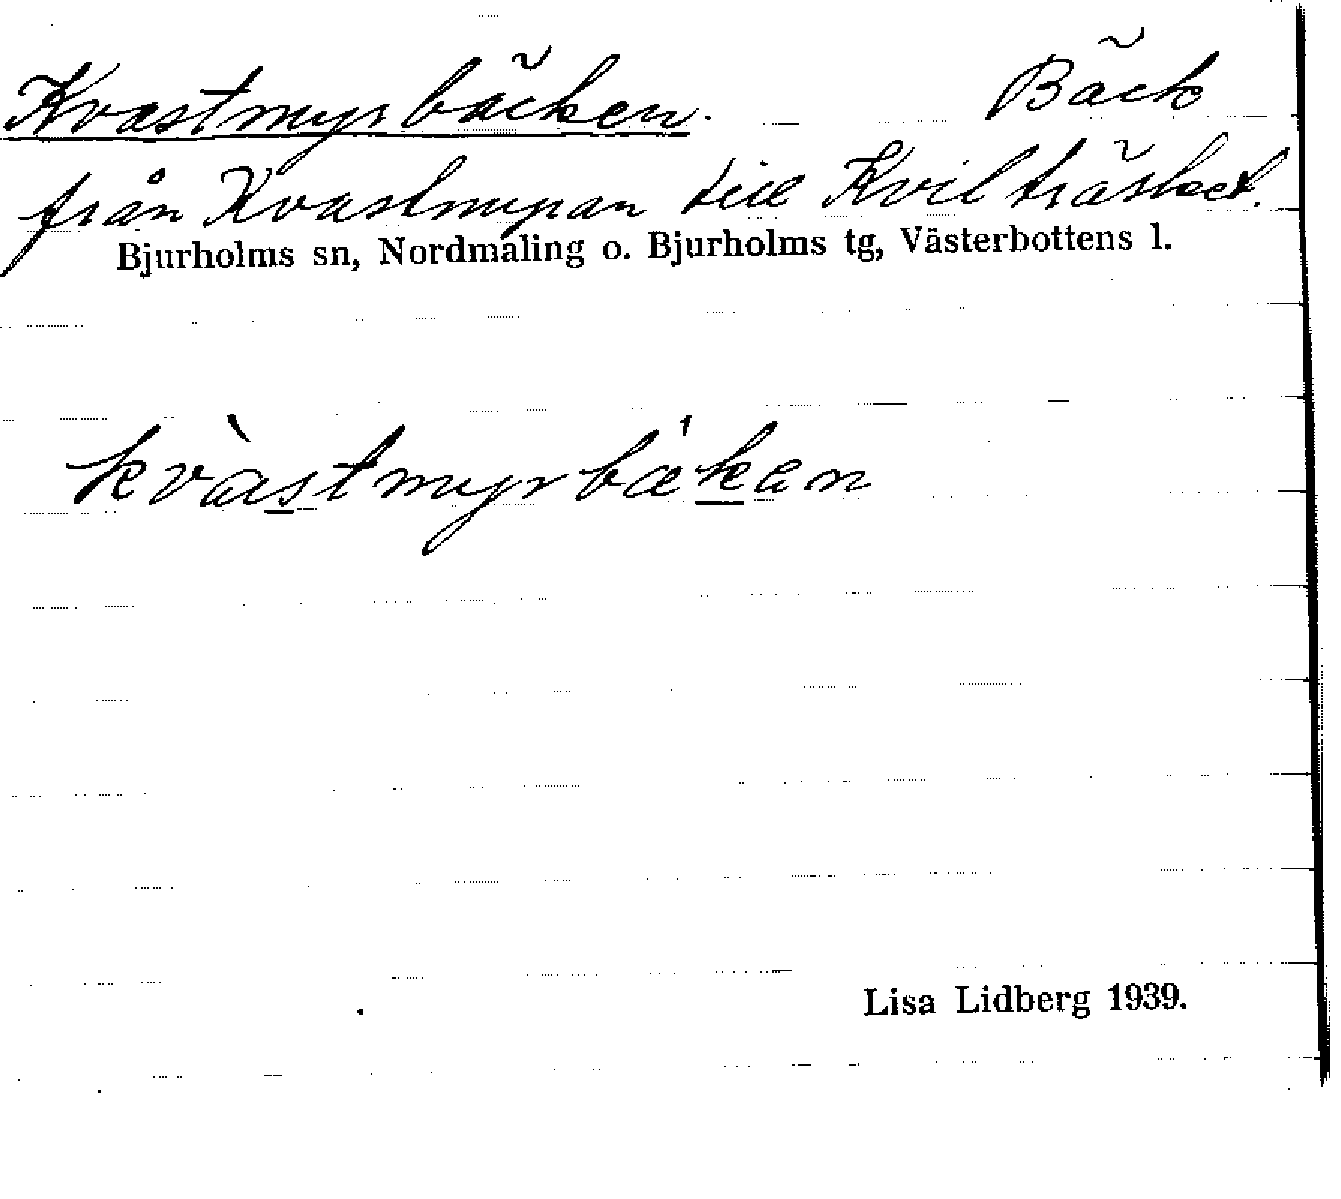 Kvastmyrbäcken. Bäck
från Kvastmyran till Kvilträsket.
Bjurholms sn, Nordmaling o. Bjurholms tg, Västerbottens l.
kvàstmyrbǽkan
Lisa Lidberg 1939.